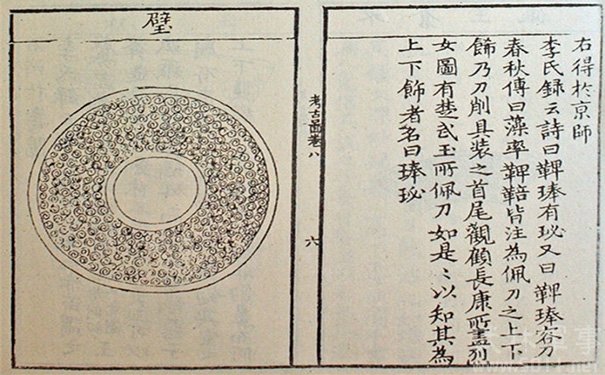 右得於京師
李氏録云詩曰鞞琫有珌又曰鞞琫容刀
春秋傳曰藻率鞞鞛皆注為佩刀之上下
飾乃刀削具装之首尾觀顧長康所畫列
女圖有楚武王所佩刀如是〻以知其為
上下飾者名曰琫珌
考古圖卷八
六
璧